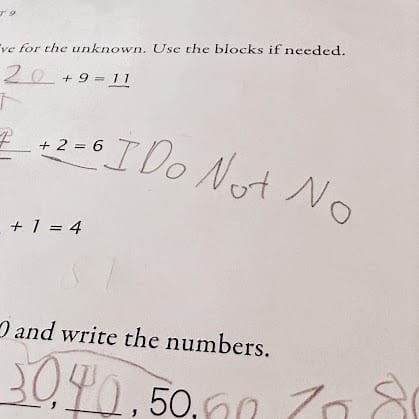 T 9
ve for the unknown. Use the blocks if needed.
20 + 9 = 11
4 + 2 = 6 I Do Not No
+ 1 = 4
0 and write the numbers.
30, 40, 50, 60 70 8